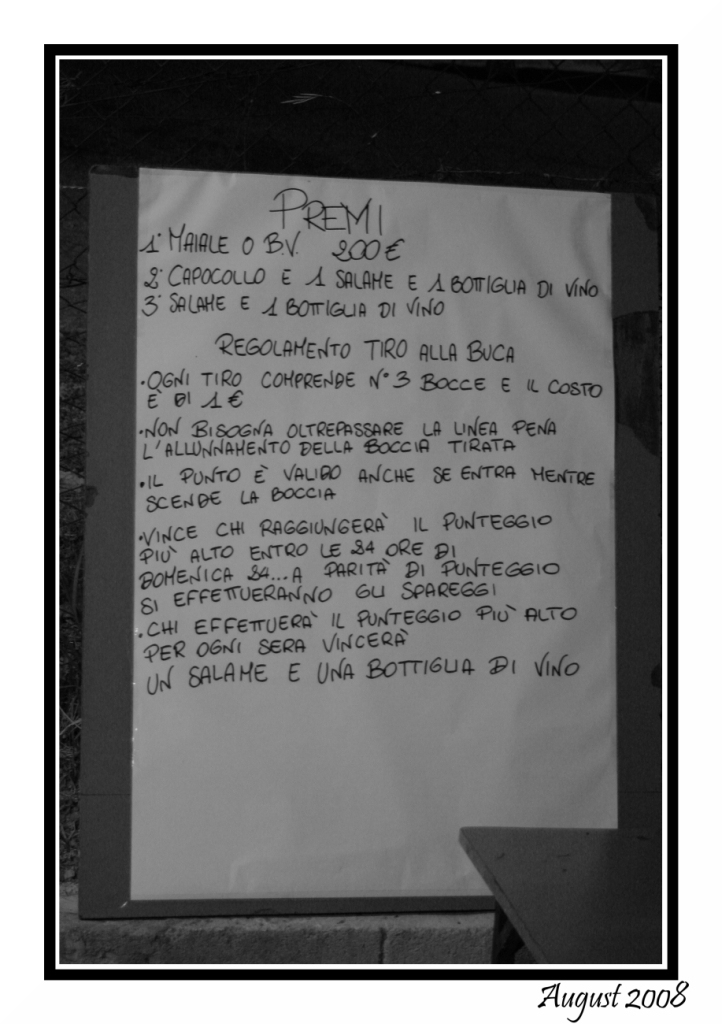 PREMI
1° MAIALE O B.V. 200€
2° CAPOCOLLO E 1 SALAME E 1 BOTTIGLIA DI VINO
3° SALAME E 1 BOTTIGLIA DI VINO
REGOLAMENTO TIRO ALLA BUCA
·OGNI TIRO COMPRENDE N°3 BOCCE E IL COSTO
È DI 1€
·NON BISOGNA OLTREPASSARE LA LINEA PENA
L'ALLUNNAMENTO DELLA BOCCIA TIRATA
·IL PUNTO È VALIDO ANCHE SE ENTRA MENTRE
SCENDE LA BOCCIA
·VINCE CHI RAGGIUNGERÀ IL PUNTEGGIO
PIÙ ALTO ENTRO LE 24 ORE DI
DOMENICA 24... A PARITÀ DI PUNTEGGIO
SI EFFETTUERANNO GLI SPAREGGI
·CHI EFFETTUERÀ IL PUNTEGGIO PIÙ ALTO
PER OGNI SERA VINCERÀ
UN SALAME E UNA BOTTIGLIA DI VINO
August 2008